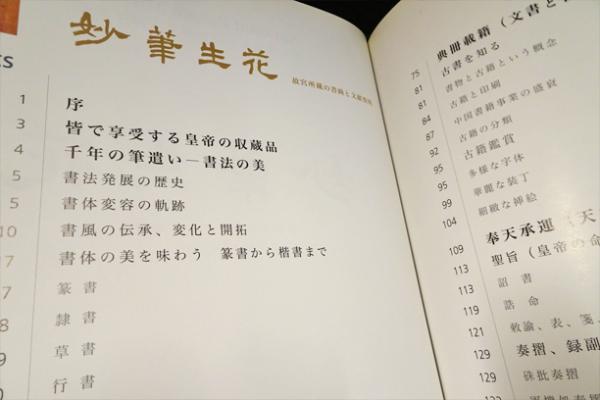 ts
妙筆生花
故宮所蔵の書画と文献整理
1 序
3 皆で享受する皇帝の収蔵品
4 千年の筆遣い―書法の美
5 書法発展の歴史
5 書体変容の軌跡
10 書風の伝承、変化と開拓
17 書体の美を味わう 篆書から楷書まで
7 篆書
8 隷書
9 草書
0 行書
典冊載籍(文書と
75 古書を知る
81 書物と古籍という概念
81 古籍と印刷
84 中国書籍事業の盛衰
87 古籍の分類
92 古籍鑑賞
95 多様な字体
95 華麗な装丁
99 細緻な挿絵
104
奉天承運(天
109 聖旨(皇帝の命
113 詔書
113 誥命
119 敕諭、表、箋、
121 奏摺、録副
129 硃批奏摺
129